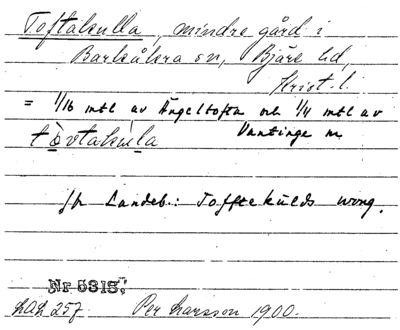 Toftakulla, mindre gård i
Barkåkra sn, Bjäre hd,
Krist. l.
= 1/16 mtl av Ängeltofta och 1/4 mtl av
Vantinge m
tòvtakula
Landeb.: Tofftekulds wong.
Nr 5313;
LAL 257. Per Larsson 1900.